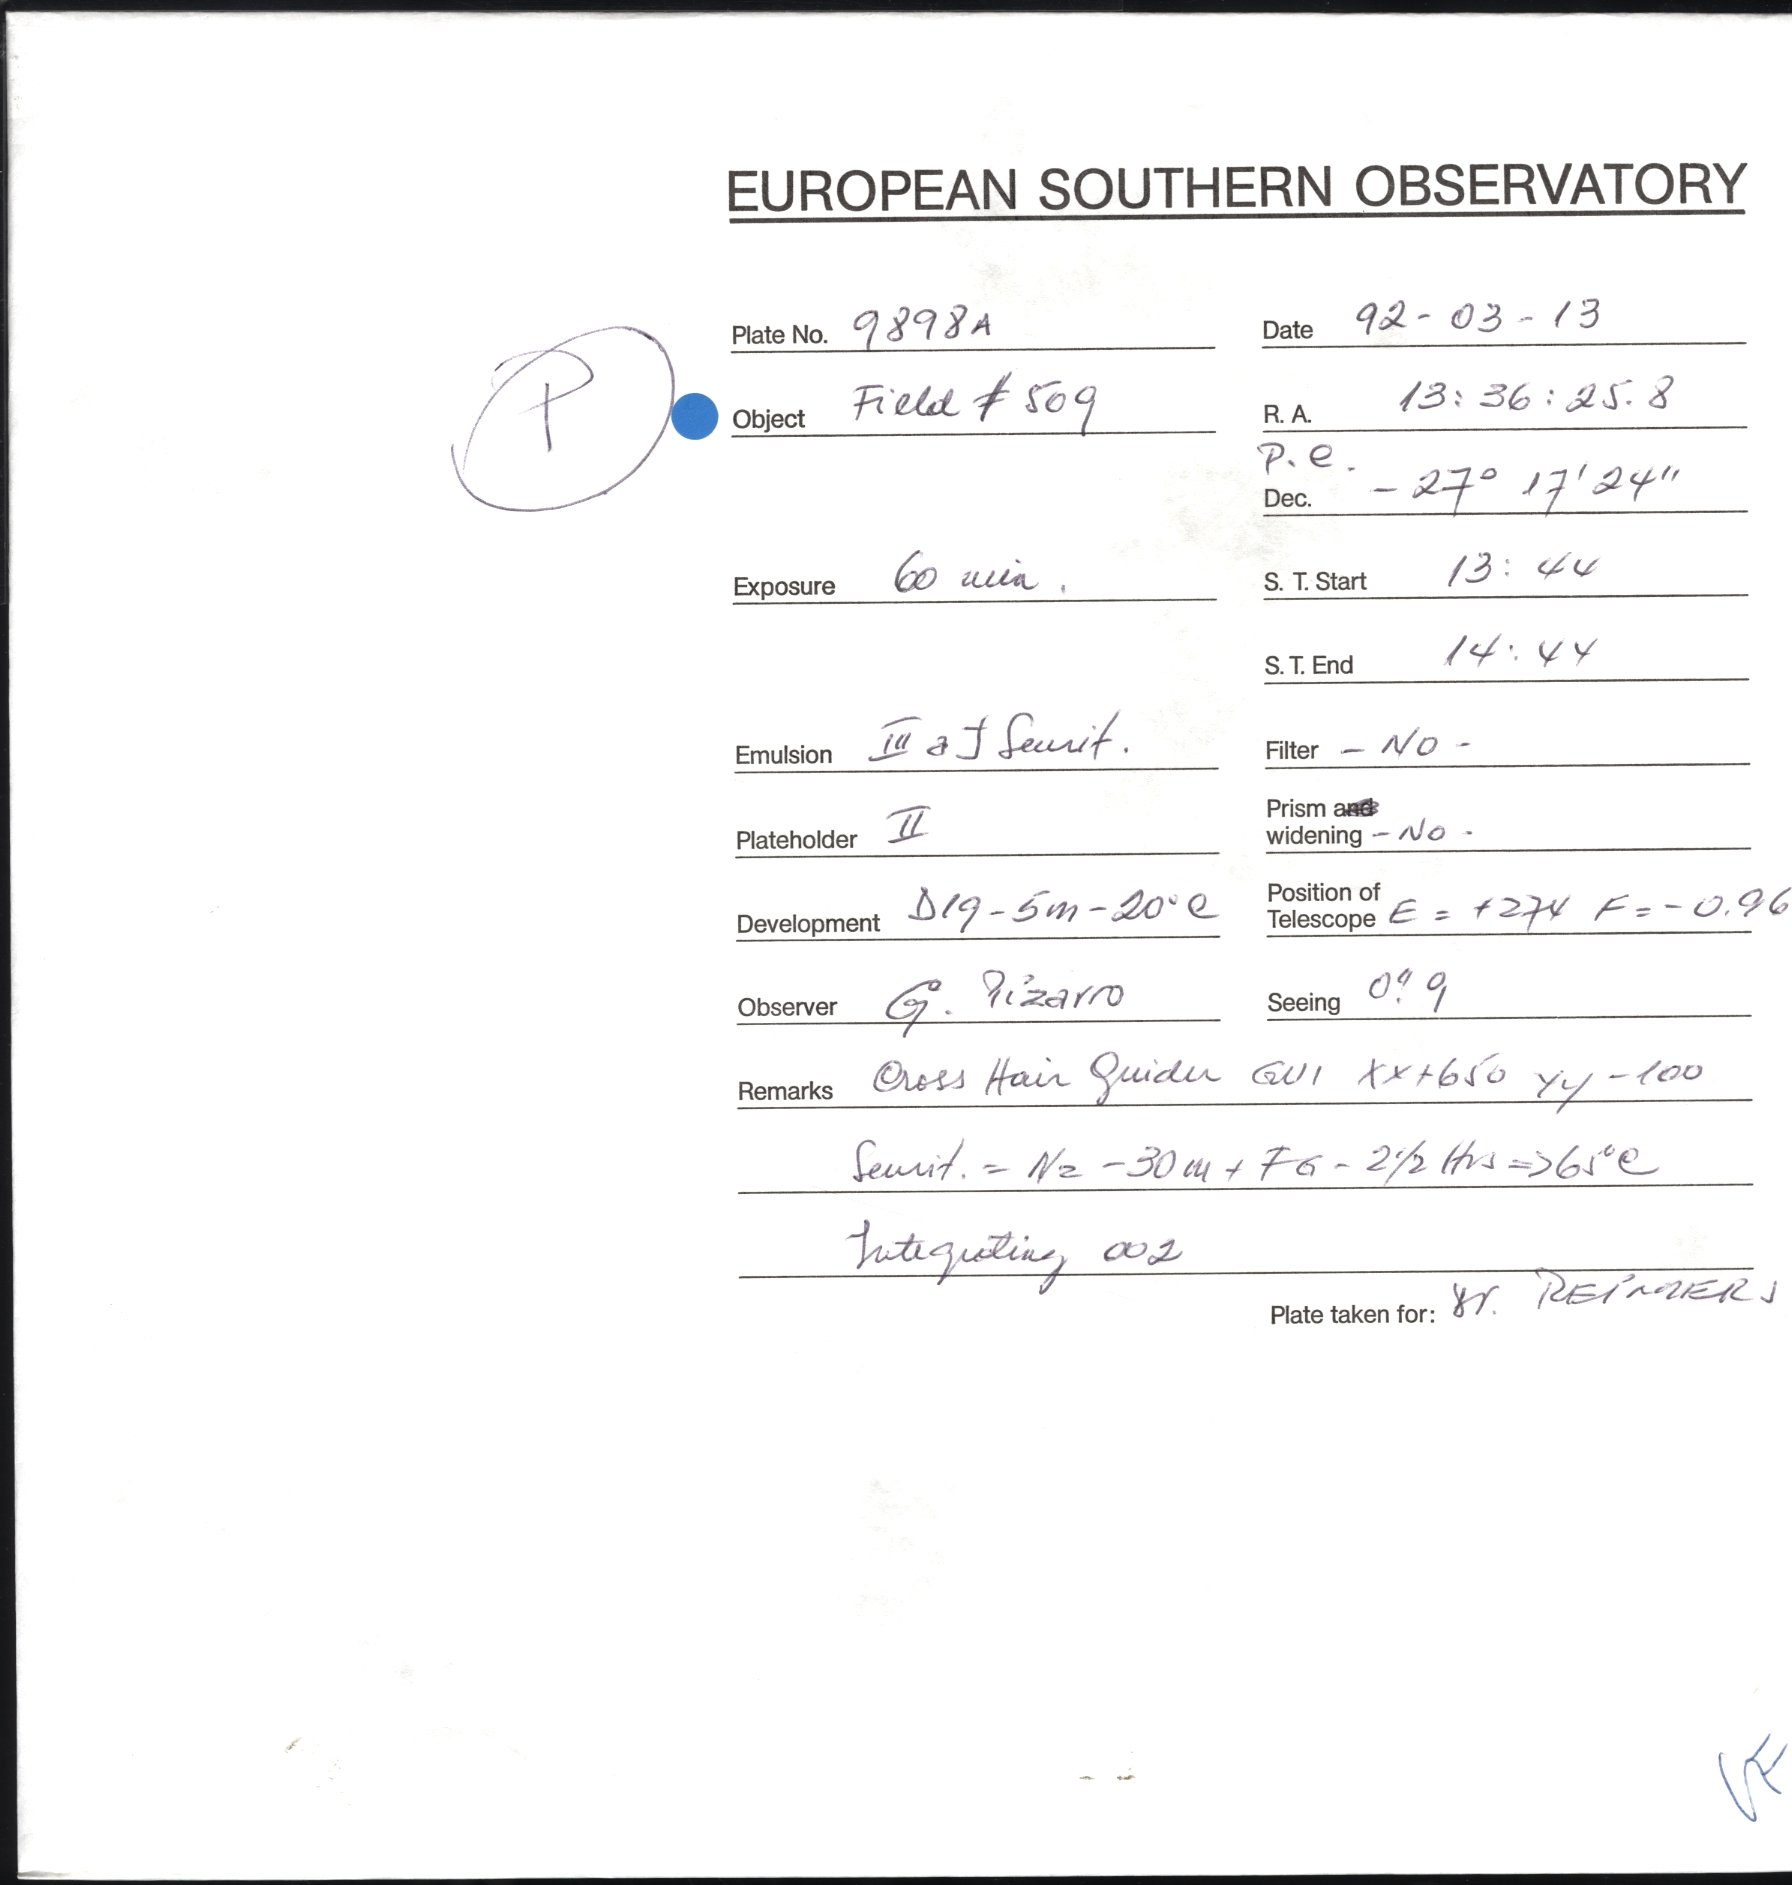 EUROPEAN SOUTHERN OBSERVATORY
Plate No. 9898A Date 92-03-13
P
Object Field # 509 R. A. 13: 36: 25.8
P.e.
Dec. - 27° 17' 24"
Exposure 60 min. S. T. Start 13: 44
S. T. End 14: 44
Emulsion III a J Sensit. Filter - No -
Plateholder II Prism and widening - No -
Development D19-5m-20°C Position of Telescope E = +274 F = -0.96
Observer G. Pizarro Seeing 0".9
Remarks Cross Hair Guider GUI XX+650 YY-100
Sensit. = N2 -30m + FG - 2 1/2 Hrs => 65°C
Integrating 002
Plate taken for: Dr. REIMERS